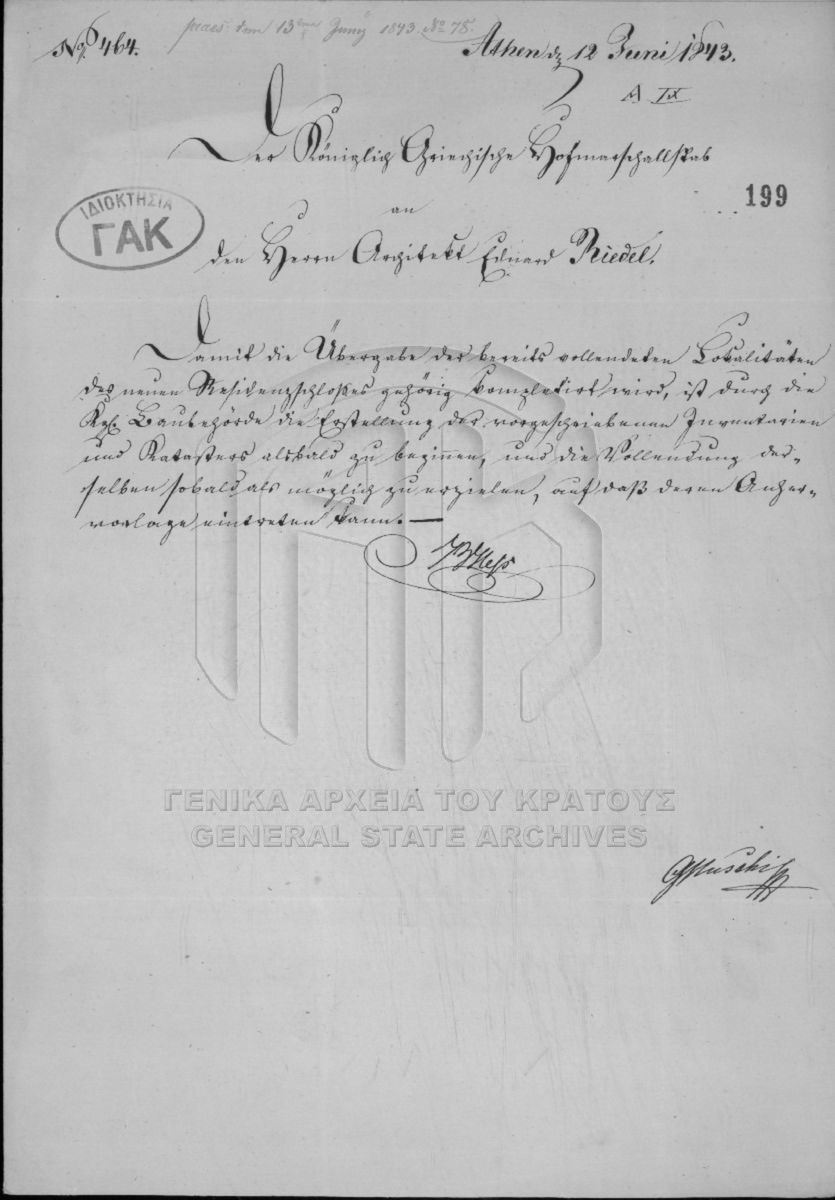 No. 464.
praes. dem 13ten Juny 1843. No 78.
Athen dn 12 Juni 1843.
A IX
Der Königlich Griechische Hofmarschallstab
199
ΙΔΙΟΚΤΗΣΙΑ
ΓΑΚ
an
den Herrn Architekt Eduard Riedel.
Damit die Übergabe der bereits vollendeten Lokalitäten
des neuen Residenzschloßes gehörig kompletirt wird, ist durch die
Kgl. Baubehörde die Erstellung der vorgeschriebenen Inventarien
und Katasters alsbald zu beginnen, und die Vollendung der-
selben sobald als möglich zu erzielen, auf daß deren Anher-
vorlage eintreten kann. —
ΓΕΝΙΚΑ ΑΡΧΕΙΑ ΤΟΥ ΚΡΑΤΟΥΣ
GENERAL STATE ARCHIVES